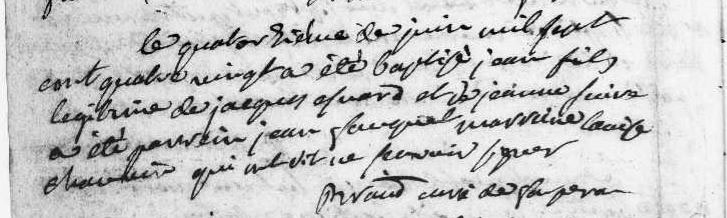 le quatorzieme de juin mil sept
cent quatre vingt a été baptisé jean fils
legitime de jacques et de jeanne
a été parrein jean marreine louise
qui ont dit ne scavoir signer
curé de